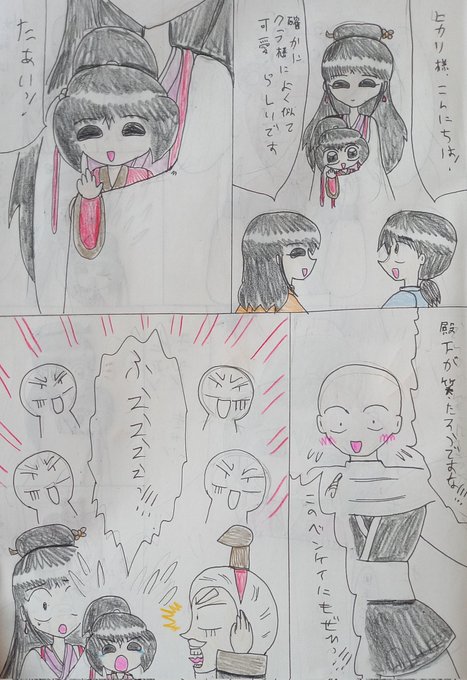 ヒカリ様こんにちは!
確かに
クラ様によく似て
可愛らしいです
たあいッ!
殿下が笑たろうですな!!
このベンケイにもぜひっ!!
ふえええええ!!!